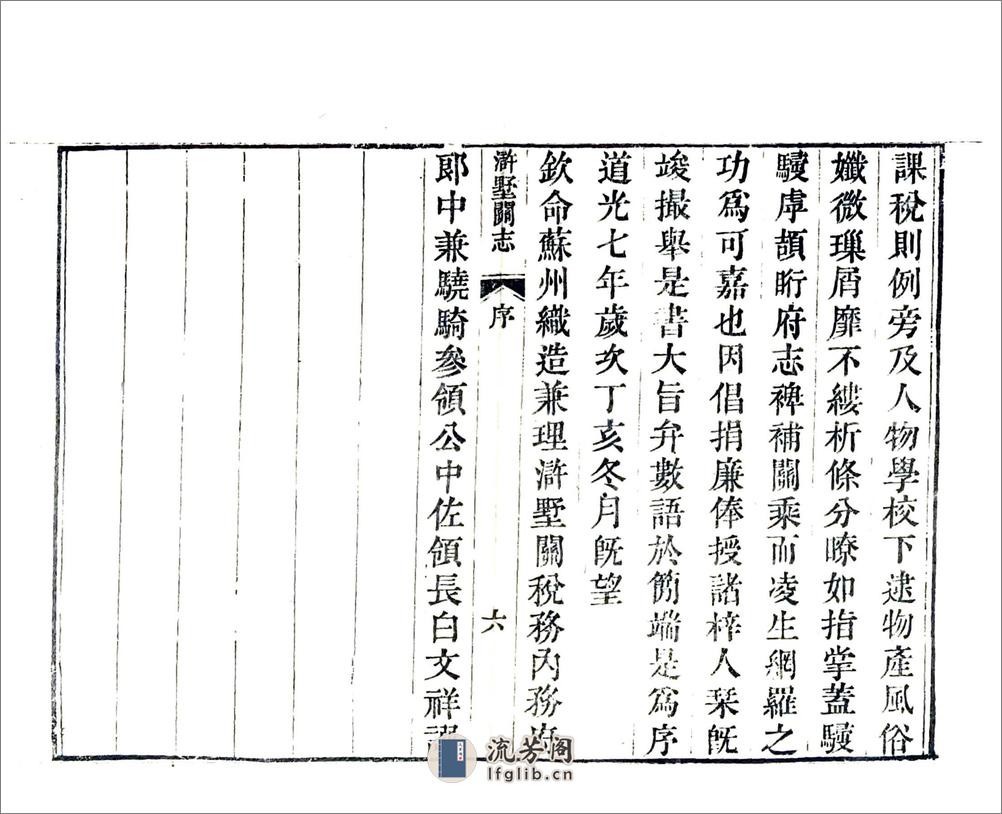 課稅則例旁及人物學校下逮物產風俗
孅微璅屑靡不縷析條分暸如指掌蓋駸
駸虖頡䀪府志裨補關乘而凌生網羅之
功爲可嘉也因倡捐廉俸授諸梓人栞旣
竣撮舉是書大旨弁數語於簡端是爲序
道光七年歲次丁亥冬月旣望
欽命蘇州織造兼理滸墅關稅務內務府
滸墅關志 序 六
郎中兼驍騎參領公中佐領長白文祥
流芳阁
lfglib.cn